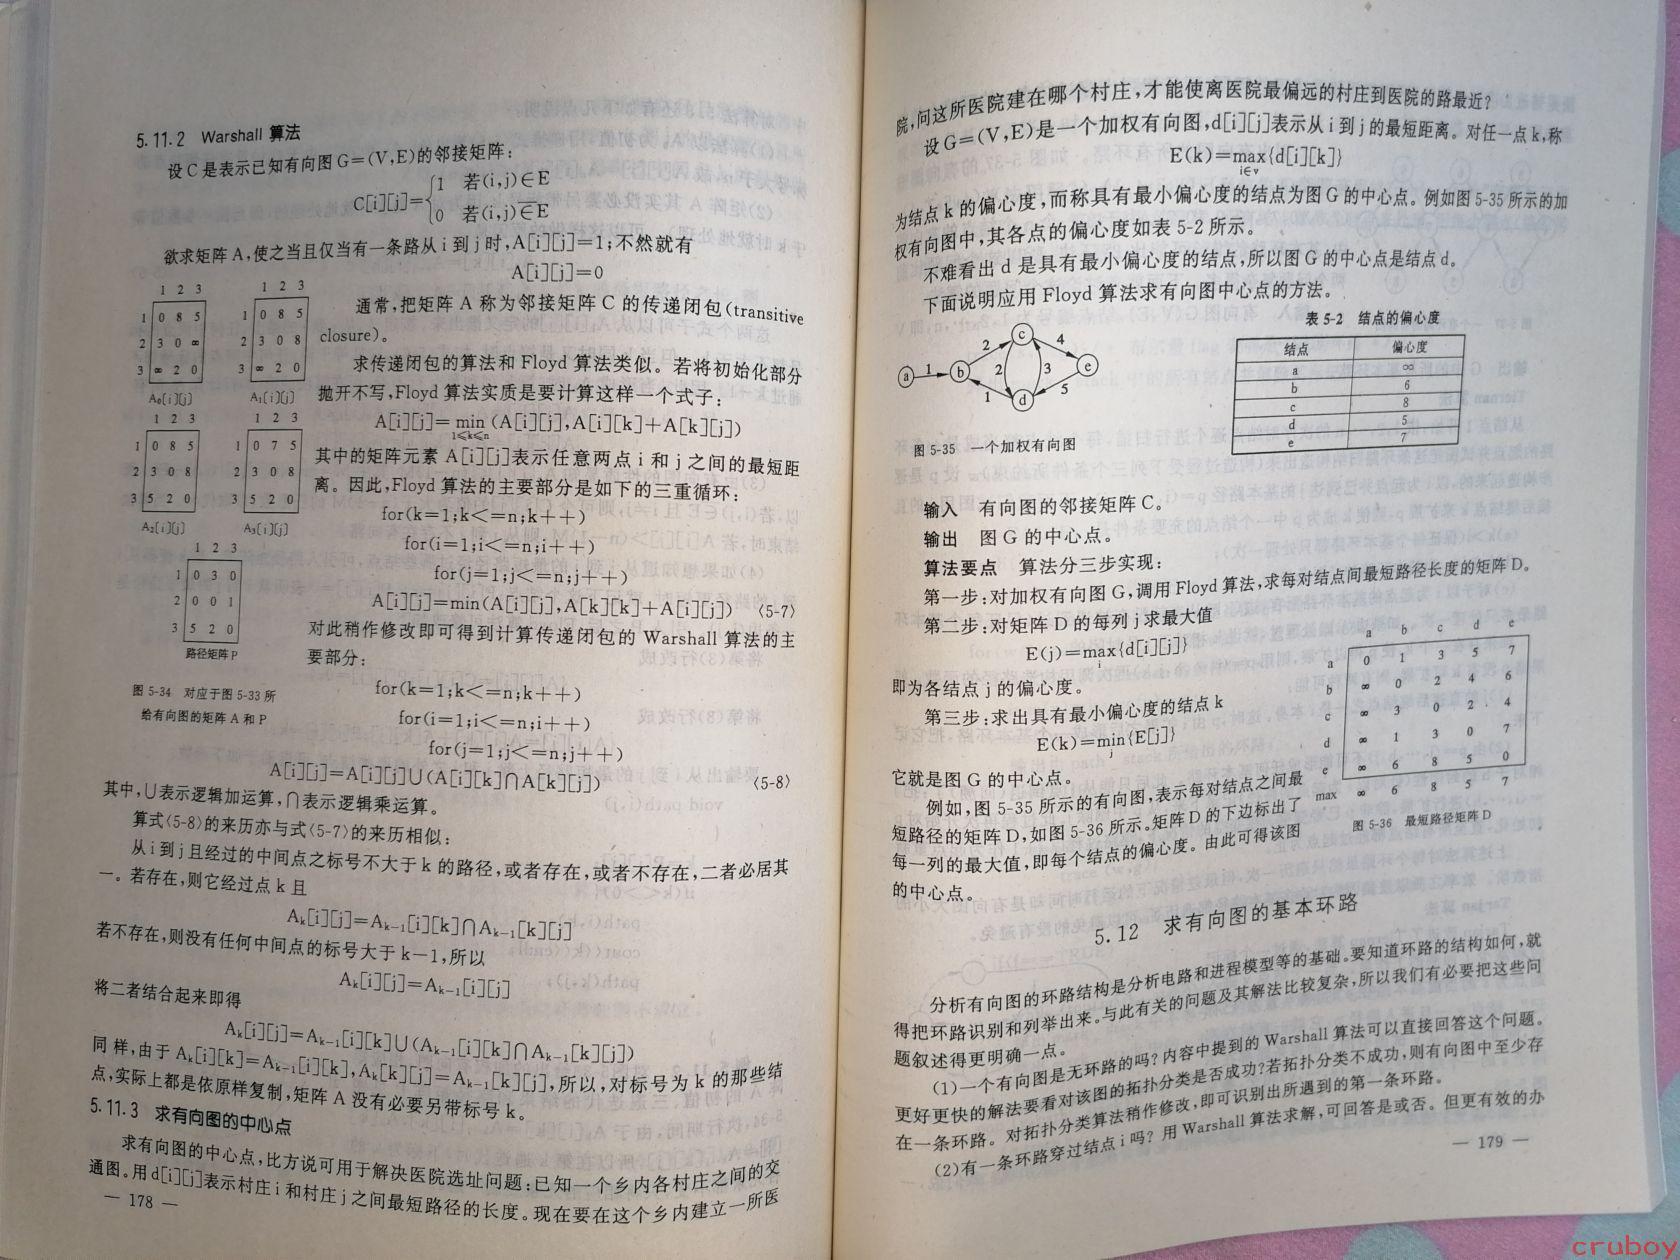 5.11.2 Warshall 算法
设 C 是表示已知有向图 G=(V,E)的邻接矩阵:
C[i][j]=
1 若(i,j)∈E
0 若(i,j)∈E
欲求矩阵 A,使之当且仅当有一条路从 i 到 j 时,A[i][j]=1;不然就有
A[i][j]=0
通常,把矩阵 A 称为邻接矩阵 C 的传递闭包(transitive
closure)。
求传递闭包的算法和 Floyd 算法类似。若将初始化部分
抛开不写,Floyd 算法实质是要计算这样一个式子:
A[i][j]=min (A[i][j],A[i][k]+A[k][j])
1≤k≤n
其中的矩阵元素 A[i][j]表示任意两点 i 和 j 之间的最短距
离。因此,Floyd 算法的主要部分是如下的三重循环:
for(k=1;k<=n;k++)
for(i=1;i<=n;i++)
for(j=1;j<=n;j++)
A[i][j]=min(A[i][j],A[k][k]+A[i][j]) 〈5-7〉
对此稍作修改即可得到计算传递闭包的 Warshall 算法的主
要部分:
for(k=1;k<=n;k++)
for(i=1;i<=n;i++)
for(j=1;j<=n;j++)
A[i][j]=A[i][j]∪(A[i][k]∩A[k][j]) 〈5-8〉
1 2 3
1 0 8 5
2 3 0 ∞
3 ∞ 2 0
A₀[i][j]
1 2 3
1 0 8 5
2 3 0 8
3 ∞ 2 0
A₁[i][j]
1 2 3
1 0 8 5
2 3 0 8
3 5 2 0
A₂[i][j]
1 2 3
1 0 7 5
2 3 0 8
3 5 2 0
A₃[i][j]
1 2 3
1 0 3 0
2 0 0 1
3 5 2 0
路径矩阵 P
图 5-34 对应于图 5-33 所
给有向图的矩阵 A 和 P
其中,∪表示逻辑加运算,∩表示逻辑乘运算。
算式〈5-8〉的来历亦与式〈5-7〉的来历相似:
从 i 到 j 且经过的中间点之标号不大于 k 的路径,或者存在,或者不存在,二者必居其
一。若存在,则它经过点 k 且
Aₖ[i][j]=Aₖ₋₁[i][k]∩Aₖ₋₁[k][j]
若不存在,则没有任何中间点的标号大于 k−1,所以
Aₖ[i][j]=Aₖ₋₁[i][j]
将二者结合起来即得
Aₖ[i][j]=Aₖ₋₁[i][k]∪(Aₖ₋₁[i][k]∩Aₖ₋₁[k][j])
同样,由于 Aₖ[i][k]=Aₖ₋₁[i][k],Aₖ[k][j]=Aₖ₋₁[k][j],所以,对标号为 k 的那些结
点,实际上都是依原样复制,矩阵 A 没有必要另带标号 k。
5.11.3 求有向图的中心点
求有向图的中心点,比方说可用于解决医院选址问题:已知一个乡内各村庄之间的交
通图。用 d[i][j]表示村庄 i 和村庄 j 之间最短路径的长度。现在要在这个乡内建立一所医
— 178 —
院,问这所医院建在哪个村庄,才能使离医院最偏远的村庄到医院的路最近?
设 G=(V,E)是一个加权有向图,d[i][j]表示从 i 到 j 的最短距离。对任一点 k,称
E(k)=max{d[i][k]}
i∈v
为结点 k 的偏心度,而称具有最小偏心度的结点为图 G 的中心点。例如图 5-35 所示的加
权有向图中,其各点的偏心度如表 5-2 所示。
不难看出 d 是具有最小偏心度的结点,所以图 G 的中心点是结点 d。
下面说明应用 Floyd 算法求有向图中心点的方法。
a 1 b 2 c 4 e
2 3
1 d 5
图 5-35 一个加权有向图
表 5-2 结点的偏心度
结点 偏心度
a ∞
b 6
c 8
d 5
e 7
输入 有向图的邻接矩阵 C。
输出 图 G 的中心点。
算法要点 算法分三步实现:
第一步:对加权有向图 G,调用 Floyd 算法,求每对结点间最短路径长度的矩阵 D。
第二步:对矩阵 D 的每列 j 求最大值
E(j)=max{d[i][j]}
i
即为各结点 j 的偏心度。
第三步:求出具有最小偏心度的结点 k
E(k)=min{E[j]}
j
它就是图 G 的中心点。
例如,图 5-35 所示的有向图,表示每对结点之间最
短路径的矩阵 D,如图 5-36 所示。矩阵 D 的下边标出了
每一列的最大值,即每个结点的偏心度。由此可得该图
的中心点。
a b c d e
a 0 1 3 5 7
b ∞ 0 2 4 6
c ∞ 3 0 2 4
d ∞ 1 3 0 7
e ∞ 6 8 5 0
max ∞ 6 8 5 7
图 5-36 最短路径矩阵 D
5.12 求有向图的基本环路
分析有向图的环路结构是分析电路和进程模型等的基础。要知道环路的结构如何,就
得把环路识别和列举出来。与此有关的问题及其解法比较复杂,所以我们有必要把这些问
题叙述得更明确一点。
(1)一个有向图是无环路的吗? 内容中提到的 Warshall 算法可以直接回答这个问题。
更好更快的解法要看对该图的拓扑分类是否成功?若拓扑分类不成功,则有向图中至少存
在一条环路。对拓扑分类算法稍作修改,即可识别出所遇到的第一条环路。
(2)有一条环路穿过结点 i 吗? 用 Warshall 算法求解,可回答是或否。但更有效的办
— 179 —
cruboy